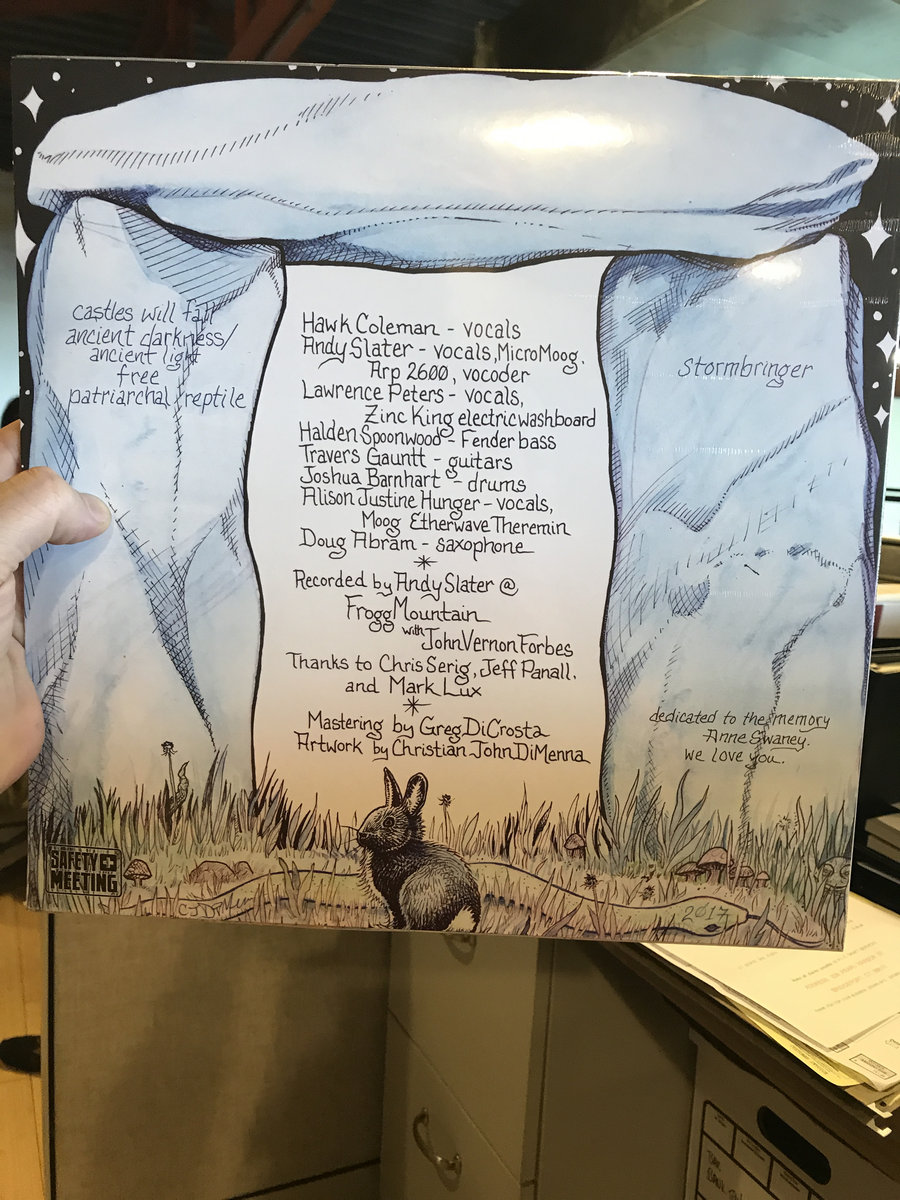 castles will fall
ancient darkness/
ancient light
free
patriarchal reptile
Hawk Coleman - vocals
Andy Slater - vocals, MicroMoog.
Arp 2600, vocoder
Lawrence Peters - vocals,
Zinc King electric washboard
Halden Spoonwood - Fender bass
Travers Gauntt - guitars
Joshua Barnhart - drums
Alison Justine Hunger - vocals,
Moog Etherwave Theremin
Doug Abram - saxophone
Recorded by Andy Slater @
Frogg Mountain
with John Vernon Forbes
Thanks to Chris Serig, Jeff Panall.
and Mark Lux
Mastering by Greg DiCrosta
Artwork by Christian John DiMenna
Stormbringer
dedicated to the memory
Anne Swaney.
we love you.
SAFETY
MEETING
CJDiM
2017